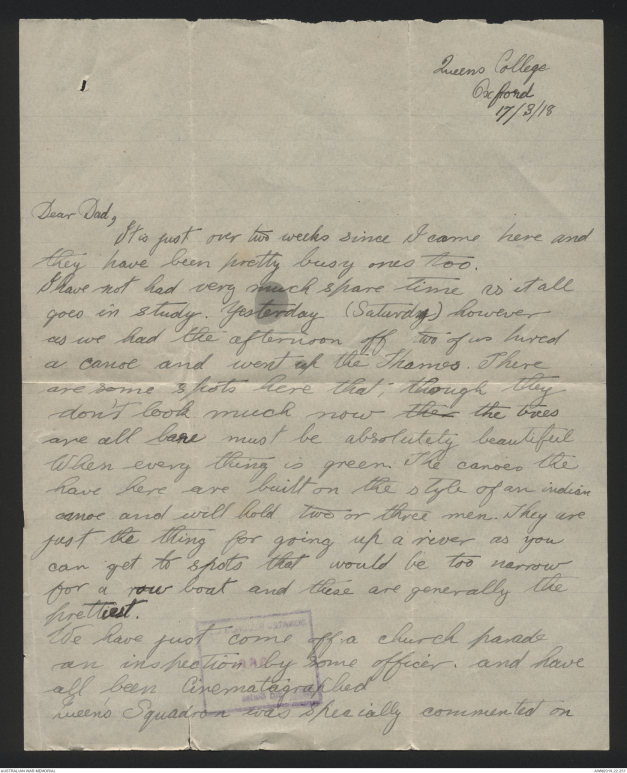 Queens College
Oxford
17/3/18
Dear Dad,
It is just over two weeks since I came here and
they have been pretty busy ones too.
I have not had very much spare time as it all
goes in study. Yesterday (Saturday) however
as we had the afternoon off two of us hired
a canoe and went up the Thames. There
are some spots here that, though they
don't look much now the the trees
are all bare must be absolutely beautiful
When every thing is green. The canoes the
have here are built on the style of an indian
canoe and will hold two or three men. They are
just the thing for going up a river as you
can get to spots that would be too narrow
for a row boat and these are generally the
prettiest.
We have just come off a church parade
an inspection by some officer. and have
all been Cinematagraphed
Queen's Squadron was specially commented on
AUSTRALIAN WAR MEMORIAL